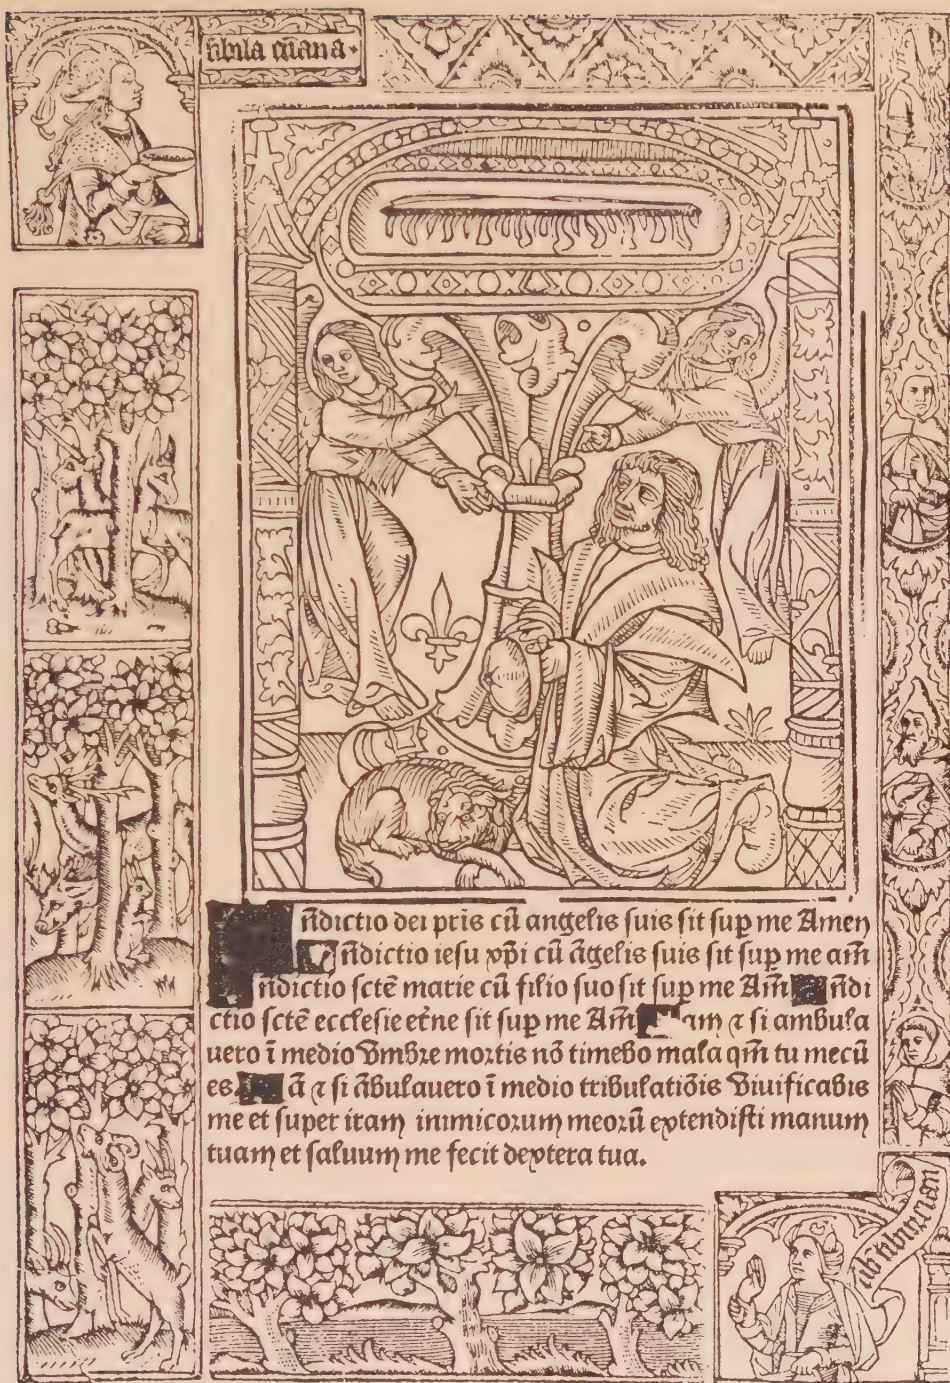 sibila cūana
ñdictio dei pris cū angelis suis sit suꝑ me Amen
ñdictio iesu xp̄i cū āgelis suis sit suꝑ me am̄
ñdictio sctē marie cū filio suo sit suꝑ me Am̄ ñdi
ctio sctē ecclesie et̄ne sit suꝑ me Am̄ am ⁊ si ambula
uero ī medio vmbre mortis nō timebo mala qm̄ tu mecū
es ā ⁊ si ābulauero ī medio tribulatiōis viuificabis
me et super iram inimicorum meorū extendisti manum
tuam et saluum me fecit dextera tua.